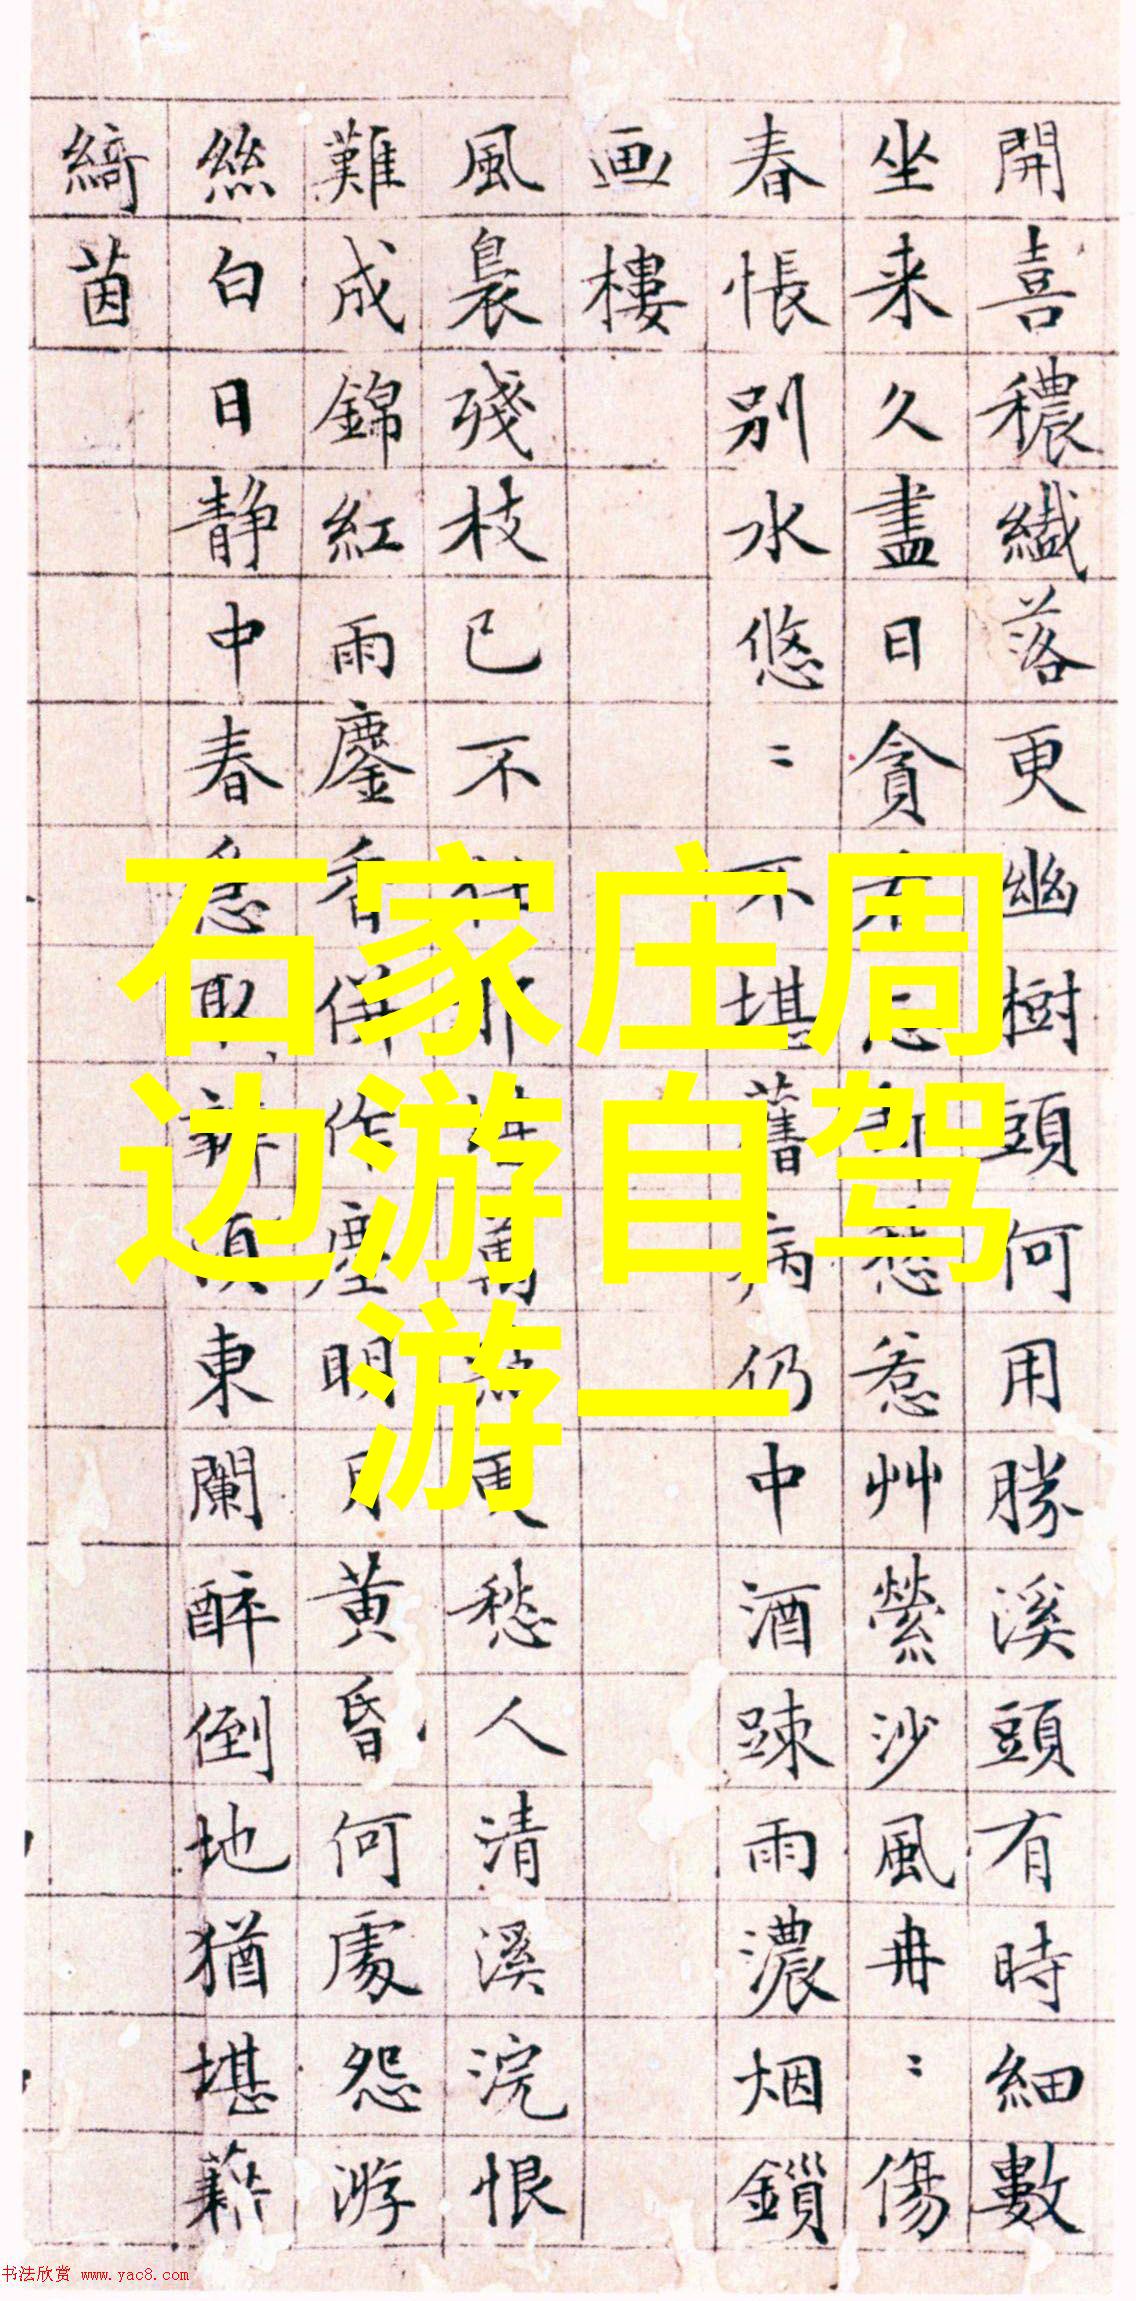 開喜穠纖落更幽樹頭何用勝溪頭有時細數
坐来久盡日貪愁惹艸縈沙風冉〻傷
春悵別水悠〻不堪舊病仍中酒踈雨濃烟鎖
画樓
風裊殘枝已不那萬更愁人清溪浣恨
難成錦紅雨鏖香併作塵明月黄昏何處怨游
絲白日静中春取須東闌醉倒地猶堪藉
綺茵
石家庄周
边游自驾
游一
书法欣赏 www.yac8.com